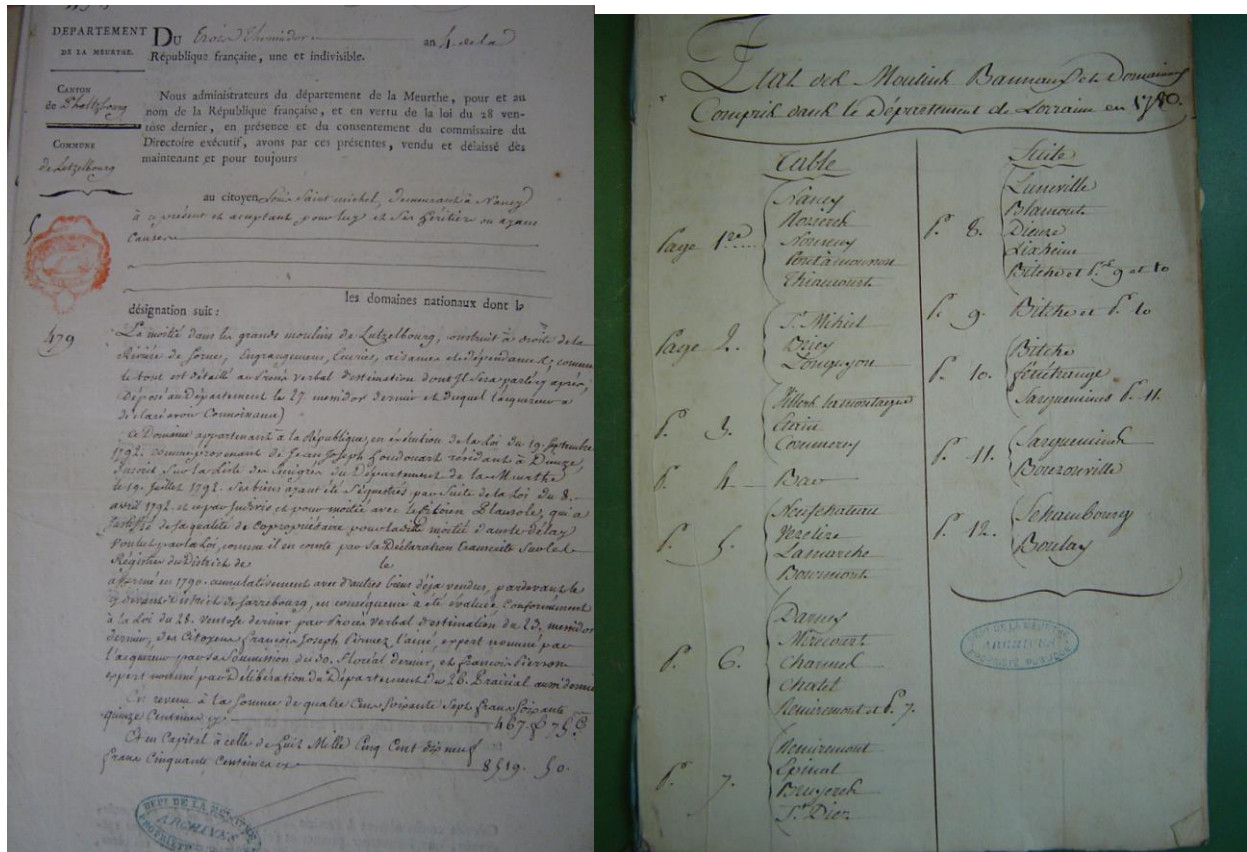 DEPARTEMENT
DE LA MEURTHE.
CANTON
de Phaltzbourg
COMMUNE
de Lutzelbourg
DU trois thermidor an 4 de la
République française, une et indivisible.
Nous administrateurs du département de la Meurthe, pour et au
nom de la République française, et en vertu de la loi du 28 ven-
tôse dernier, en présence et du consentement du commissaire du
Directoire exécutif, avons par ces présentes, vendu et délaissé dès
maintenant et pour toujours
au citoyen Louis Saint michel, demeurant à Nancy
à ce présent et acceptant, pour luy et ses héritiers ou ayans
Cause
les domaines nationaux dont la
désignation suit :
479
La moitié dans les grands moulins de Lutzelbourg, construit à droite de la
Rivière de Sorne, Engrangemens, Ecuries, aisances et dépendances, comme
le tout est détaillé au Procès verbal d'estimation dont Il sera parlé cy après,
Déposé au Département le 27 messidor dernier et duquel l'acquereur a
déclaré avoir Connoissance)
Ce Domaine appartenant à la République, en exécution de la Loi du 19. Septembre
1792. comme provenant de Jean Joseph résidant à Dieuze,
Inscrit sur la Liste des Emigrés du Département de la Meurthe
le 19. Juillet 1792. Ses biens ayant été séquestrés par suite de la Loi du 8.
avril 1792. et ce par Indivis et pour moitié avec le Citoyen Plausole, qui a
Justifié de sa qualité de Copropriétaire pour ladite moitié dans le délay
Voulut par la Loi, comme il en conste par sa Déclaration transcrite sur les
Régistres du District de le
affermé en 1790. cumulativement avec d'autres biens déja vendus, pardevant le
cy devant District de Sarrebourg, en conséquence a été évaluée Conformément
à la Loi du 28. Ventose dernier par Procès Verbal d'estimation du 23. messidor
dernier, des Citoyens François Joseph Pirmez l'ainé, expert nommé par
l'acquereur par sa Soumission du 30. floréal dernier, et François Pierson
expert nommé par Délibération du Département du 26. Prairial
En revenu à la Somme de quatre Cens Soixante Sept francs Soixante
quinze Centimes cy 467. f 75 c
Et en Capital à celle de huit Mille Cinq Cent dix neuf
francs Cinquante Centimes cy 8519. 50.
DEPT DE LA MEURTHE
ARCHIVES
PROPRIÉTÉ PUBLIQUE
Etat des Moulins Banneaux et Domaines
Compris dans le Département de Lorraine en 1780.
Table
Page 1re
Nancy
Rozieres
Nomeny
Pontamousson
Thiaucourt
Page 2.
St Mihiel
Briey
Longuyon
P. 3.
Villers lamontagne
Etain
Commercy
P. 4
Bar
P. 5.
Neufchateau
Vezelize
Lamarche
Bourmont
P. 6.
Darney
Mirecourt
Charmes
Chatel
Remiremont et P. 7.
P. 7.
Remiremont
Epinal
Bruyeres
St Diez
Suite
P. 8.
Luneville
Blamont
Dieuze
Lixheim
Bitche et P.es 9 et 10
P. 9. Bitche et P. 10
P. 10.
Bitche
fenétrange
Sarguemines P. 11.
P. 11.
Sarguemines
Bouzonville
P. 12.
Schambourg
Boulay
DEPT DE LA MEURTHE
ARCHIVES
PROPRIÉTÉ PUBLIQUE